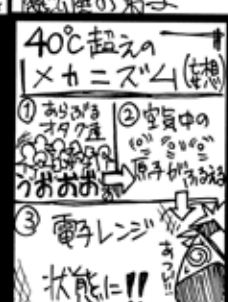 40℃超えの
メカニズム(妄想)
①あらぶる
オタク達
うおおお
②空気中の
原子がふるえる
③電子レンジ
状態に!!
あっつ!!